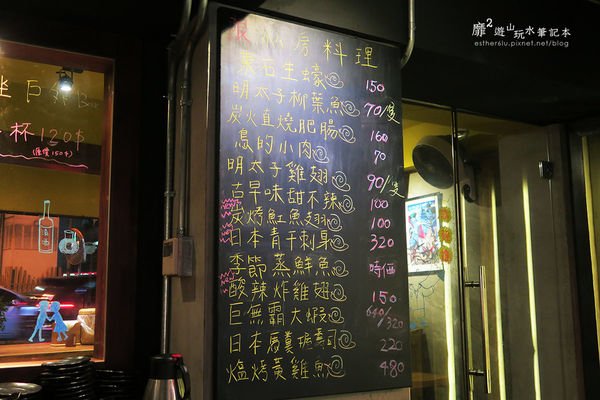 靡²遊山玩水筆記本
esther6lu.pixnet.net/blog
杯120$
私房料理
石生蠔 150
明太子柳葉魚 70/隻
炭火直燒肥腸 160
鳥的小肉 70
明太子雞翅 90/隻
古早味甜不辣 100
炭烤魟魚翅 100
日本青干刺身 320
季節蒸鮮魚 時價
酸辣炸雞翅 150
巨無霸大蝦 640/320
日本 壽司 220
爐烤黃雞魚 480